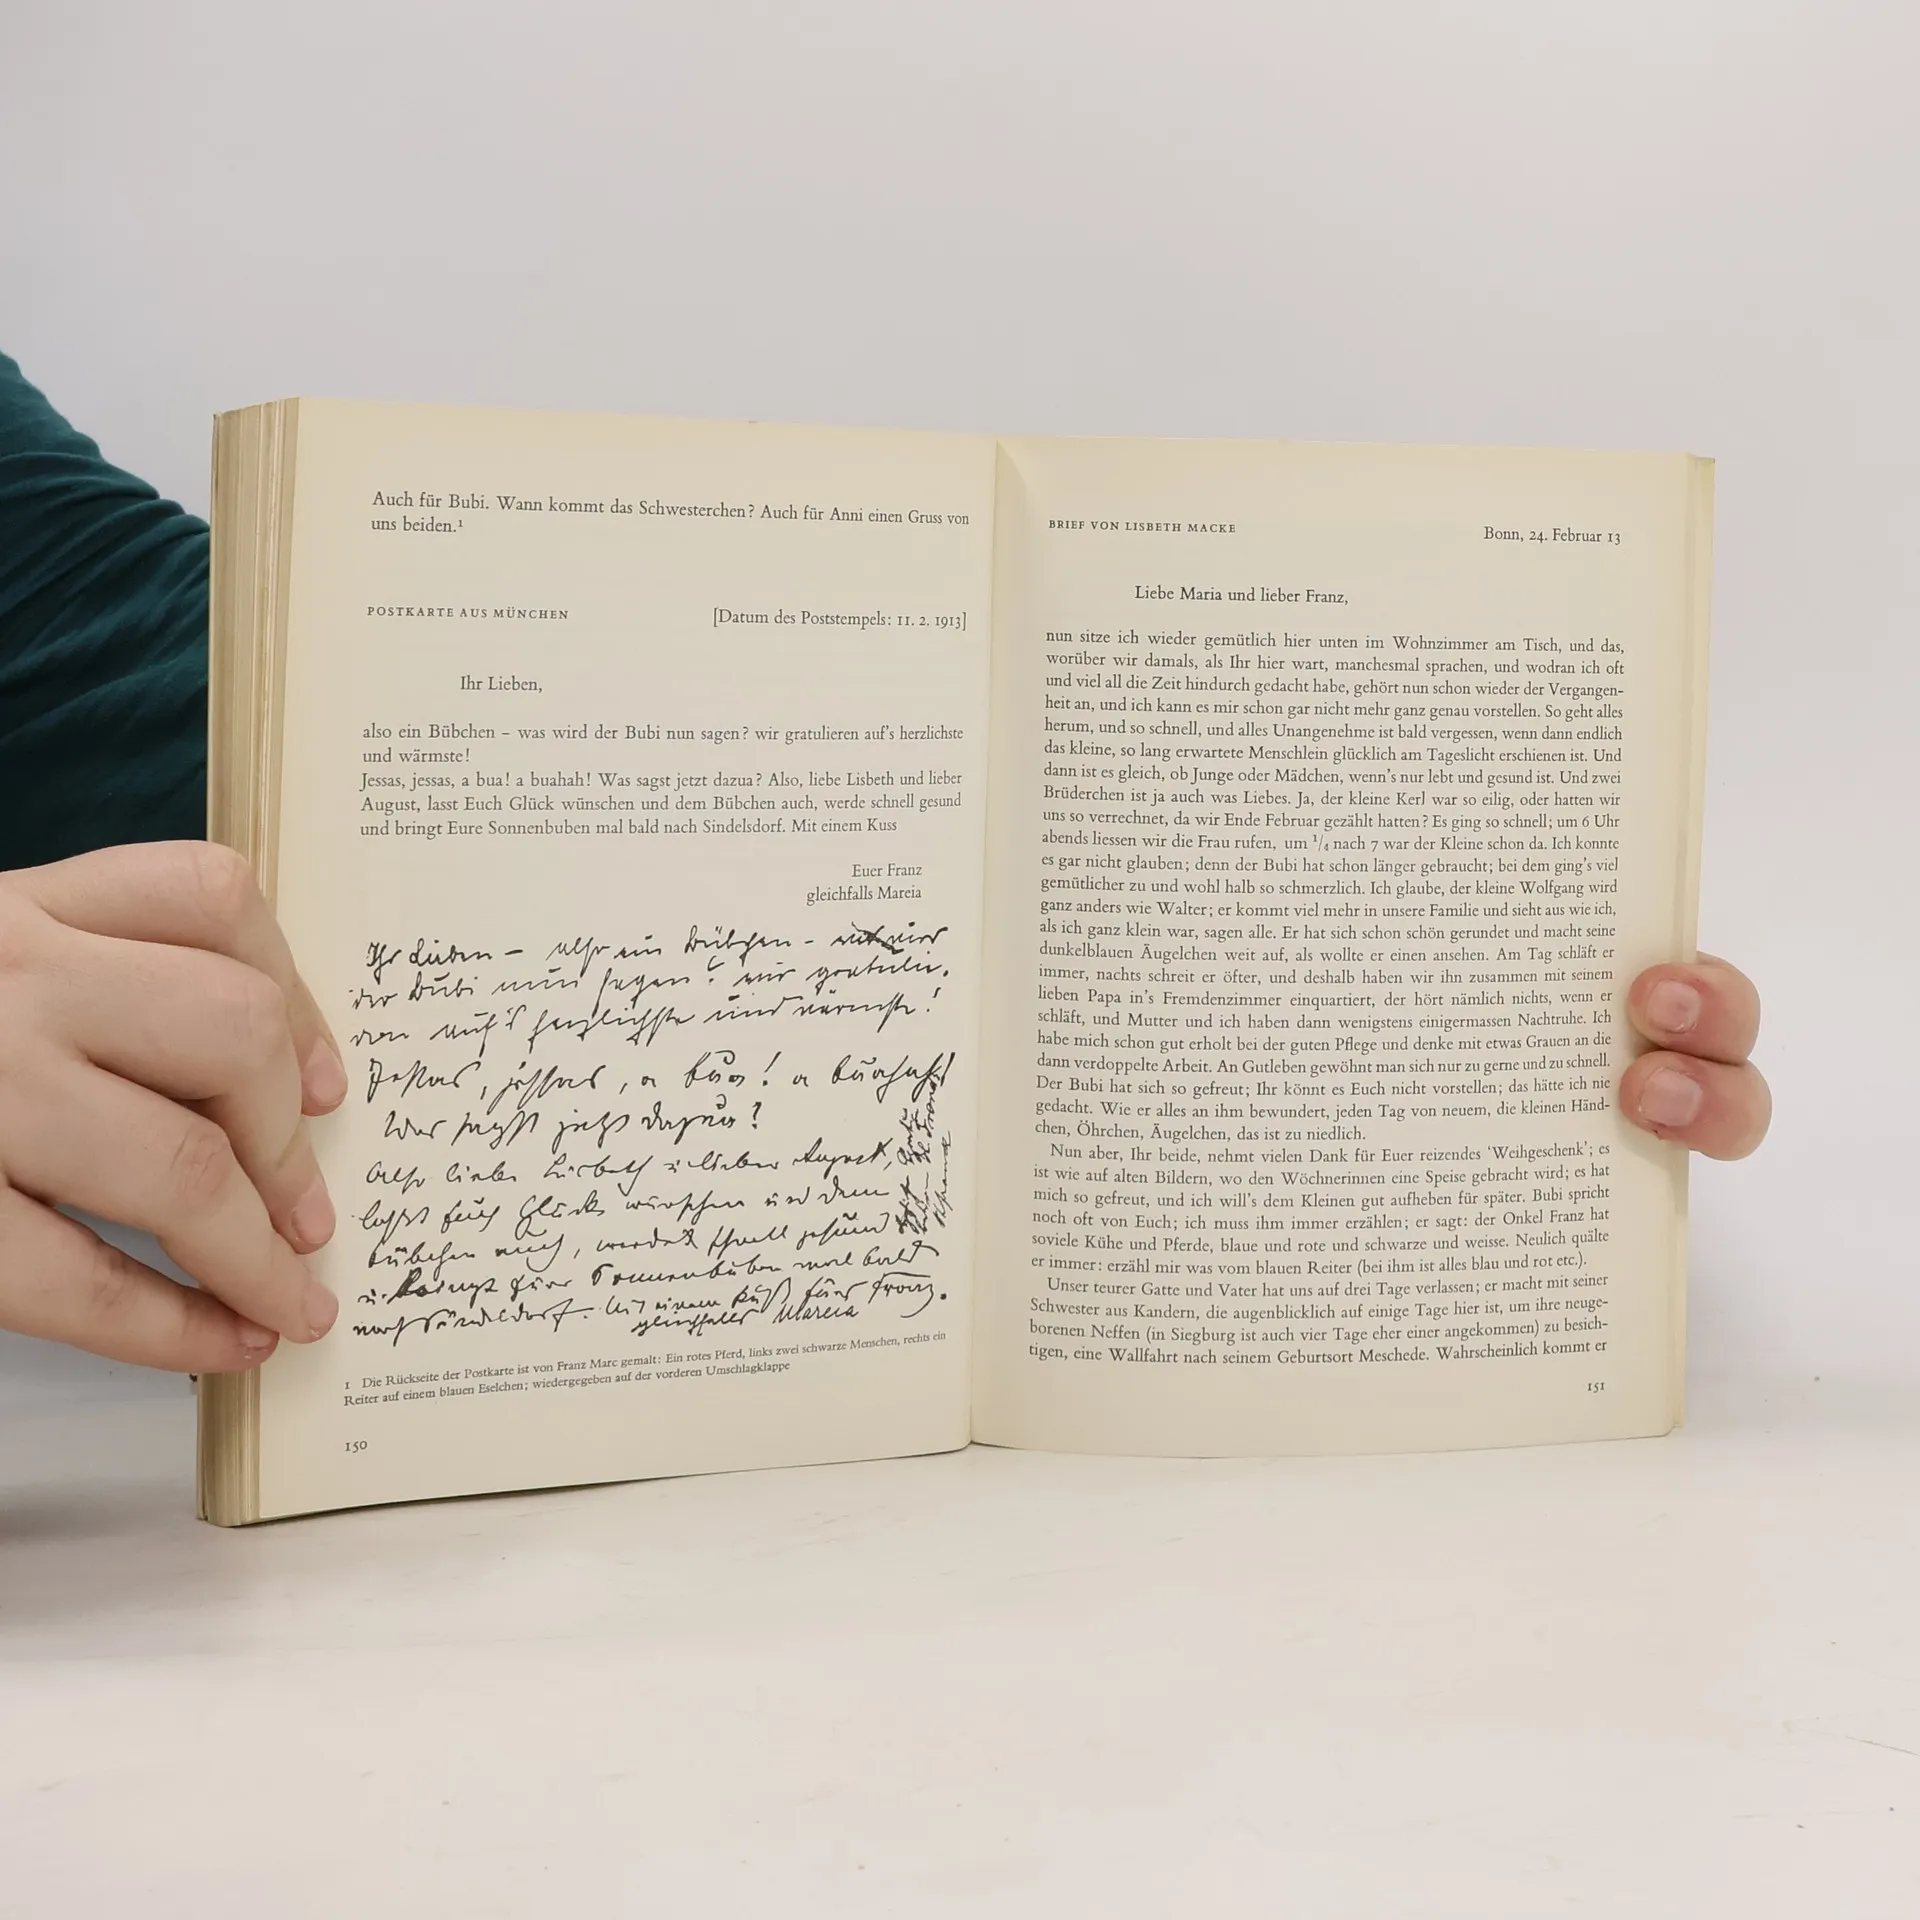 Auch für Bubi. Wann kommt das Schwesterchen? Auch für Anni einen Gruss von
uns beiden.¹
POSTKARTE AUS MÜNCHEN [Datum des Poststempels: 11. 2. 1913]
Ihr Lieben,
also ein Bübchen – was wird der Bubi nun sagen? wir gratulieren auf's herzlichste
und wärmste!
Jessas, jessas, a bua! a buahah! Was sagst jetzt dazua? Also, liebe Lisbeth und lieber
August, lasst Euch Glück wünschen und dem Bübchen auch, werde schnell gesund
und bringt Eure Sonnenbuben mal bald nach Sindelsdorf. Mit einem Kuss
Euer Franz
gleichfalls Mareia
Ihr Lieben – also ein Bübchen – wird
der Bubi nun sagen? wir gratulie-
ren auf's herzlichste und wärmste!
Jessas, jessas, a bua! a buahah!
Was sagst jetzt dazua?
Also liebe Lisbeth u. lieber August,
lasst Euch Glück wünschen und dem
Bübchen auch, werdet schnell gesund
u. bringt Eure Sonnenbuben mal bald
nach Sindelsdorf. Mit einem Kuß Euer Franz.
gleichfalls Mareia
1 Die Rückseite der Postkarte ist von Franz Marc gemalt: Ein rotes Pferd, links zwei schwarze Menschen, rechts ein
Reiter auf einem blauen Eselchen; wiedergegeben auf der vorderen Umschlagklappe
150
BRIEF VON LISBETH MACKE Bonn, 24. Februar 13
Liebe Maria und lieber Franz,
nun sitze ich wieder gemütlich hier unten im Wohnzimmer am Tisch, und das,
worüber wir damals, als Ihr hier wart, manchesmal sprachen, und wodran ich oft
und viel all die Zeit hindurch gedacht habe, gehört nun schon wieder der Vergangen-
heit an, und ich kann es mir schon gar nicht mehr ganz genau vorstellen. So geht alles
herum, und so schnell, und alles Unangenehme ist bald vergessen, wenn dann endlich
das kleine, so lang erwartete Menschlein glücklich am Tageslicht erschienen ist. Und
dann ist es gleich, ob Junge oder Mädchen, wenn's nur lebt und gesund ist. Und zwei
Brüderchen ist ja auch was Liebes. Ja, der kleine Kerl war so eilig, oder hatten wir
uns so verrechnet, da wir Ende Februar gezählt hatten? Es ging so schnell; um 6 Uhr
abends liessen wir die Frau rufen, um ¼ nach 7 war der Kleine schon da. Ich konnte
es gar nicht glauben; denn der Bubi hat schon länger gebraucht; bei dem ging's viel
gemütlicher zu und wohl halb so schmerzlich. Ich glaube, der kleine Wolfgang wird
ganz anders wie Walter; er kommt viel mehr in unsere Familie und sieht aus wie ich,
als ich ganz klein war, sagen alle. Er hat sich schon schön gerundet und macht seine
dunkelblauen Äugelchen weit auf, als wollte er einen ansehen. Am Tag schläft er
immer, nachts schreit er öfter, und deshalb haben wir ihn zusammen mit seinem
lieben Papa in's Fremdenzimmer einquartiert, der hört nämlich nichts, wenn er
schläft, und Mutter und ich haben dann wenigstens einigermassen Nachtruhe. Ich
habe mich schon gut erholt bei der guten Pflege und denke mit etwas Grauen an die
dann verdoppelte Arbeit. An Gutleben gewöhnt man sich nur zu gerne und zu schnell.
Der Bubi hat sich so gefreut; Ihr könnt es Euch nicht vorstellen; das hätte ich nie
gedacht. Wie er alles an ihm bewundert, jeden Tag von neuem, die kleinen Händ-
chen, Öhrchen, Äugelchen, das ist zu niedlich.
Nun aber, Ihr beide, nehmt vielen Dank für Euer reizendes 'Weihgeschenk'; es
ist wie auf alten Bildern, wo den Wöchnerinnen eine Speise gebracht wird; es hat
mich so gefreut, und ich will's dem Kleinen gut aufheben für später. Bubi spricht
noch oft von Euch; ich muss ihm immer erzählen; er sagt: der Onkel Franz hat
soviele Kühe und Pferde, blaue und rote und schwarze und weisse. Neulich quälte
er immer: erzähl mir was vom blauen Reiter (bei ihm ist alles blau und rot etc.).
Unser teurer Gatte und Vater hat uns auf drei Tage verlassen; er macht mit seiner
Schwester aus Kandern, die augenblicklich auf einige Tage hier ist, um ihre neuge-
borenen Neffen (in Siegburg ist auch vier Tage eher einer angekommen) zu besich-
tigen, eine Wallfahrt nach seinem Geburtsort Meschede. Wahrscheinlich kommt er
151